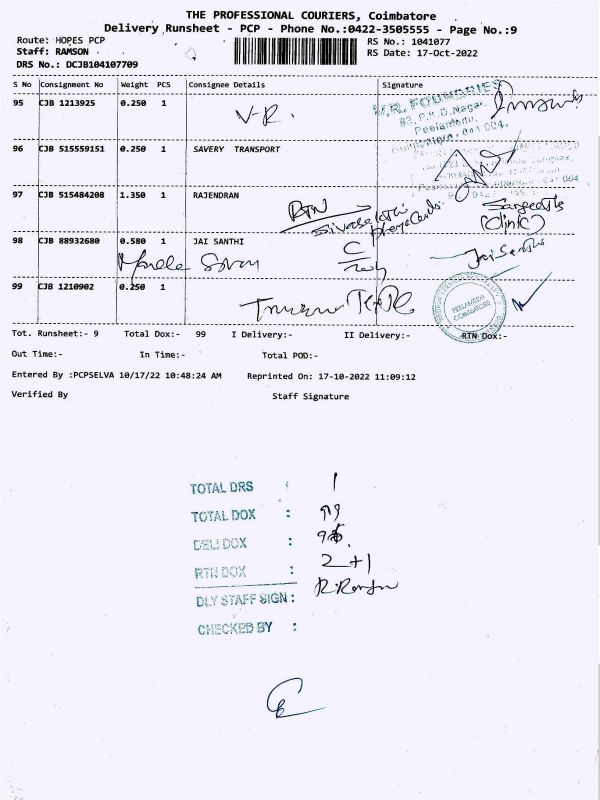 THE PROFESSIONAL COURIERS, Coimbatore
Delivery Runsheet - PCP - Phone No.:0422-3505555 - Page No.:9
Route: HOPES PCP
RS No.: 1041077
Staff: RAMSON
RS Date: 17-Oct-2022
DRS No.: DCJB104107709
S No Consignment No Weight PCS Consignee Details Signature
95 CJB 1213925 0.250 1 V-R. V.R. FOUNDRIES
Peelamedu
96 CJB 515559151 0.250 1 SAVERY TRANSPORT
97 CJB 515484208 1.350 1 RAJENDRAN
RTN
Sangeetha
(Clinic)
98 CJB 88932680 0.580 1 JAI SANTHI
Jai Santhi
99 CJB 1210902 0.250 1
PEELAMEDU
COIMBATORE
Tot. Runsheet:- 9 Total Dox:- 99 I Delivery:- II Delivery:- RTN Dox:-
Out Time:- In Time:- Total POD:-
Entered By :PCPSELVA 10/17/22 10:48:24 AM Reprinted On: 17-10-2022 11:09:12
Verified By Staff Signature
TOTAL DRS : 1
TOTAL DOX : 99
DELI DOX :
RTN DOX : 2+1
DLY STAFF SIGN :
CHECKED BY :